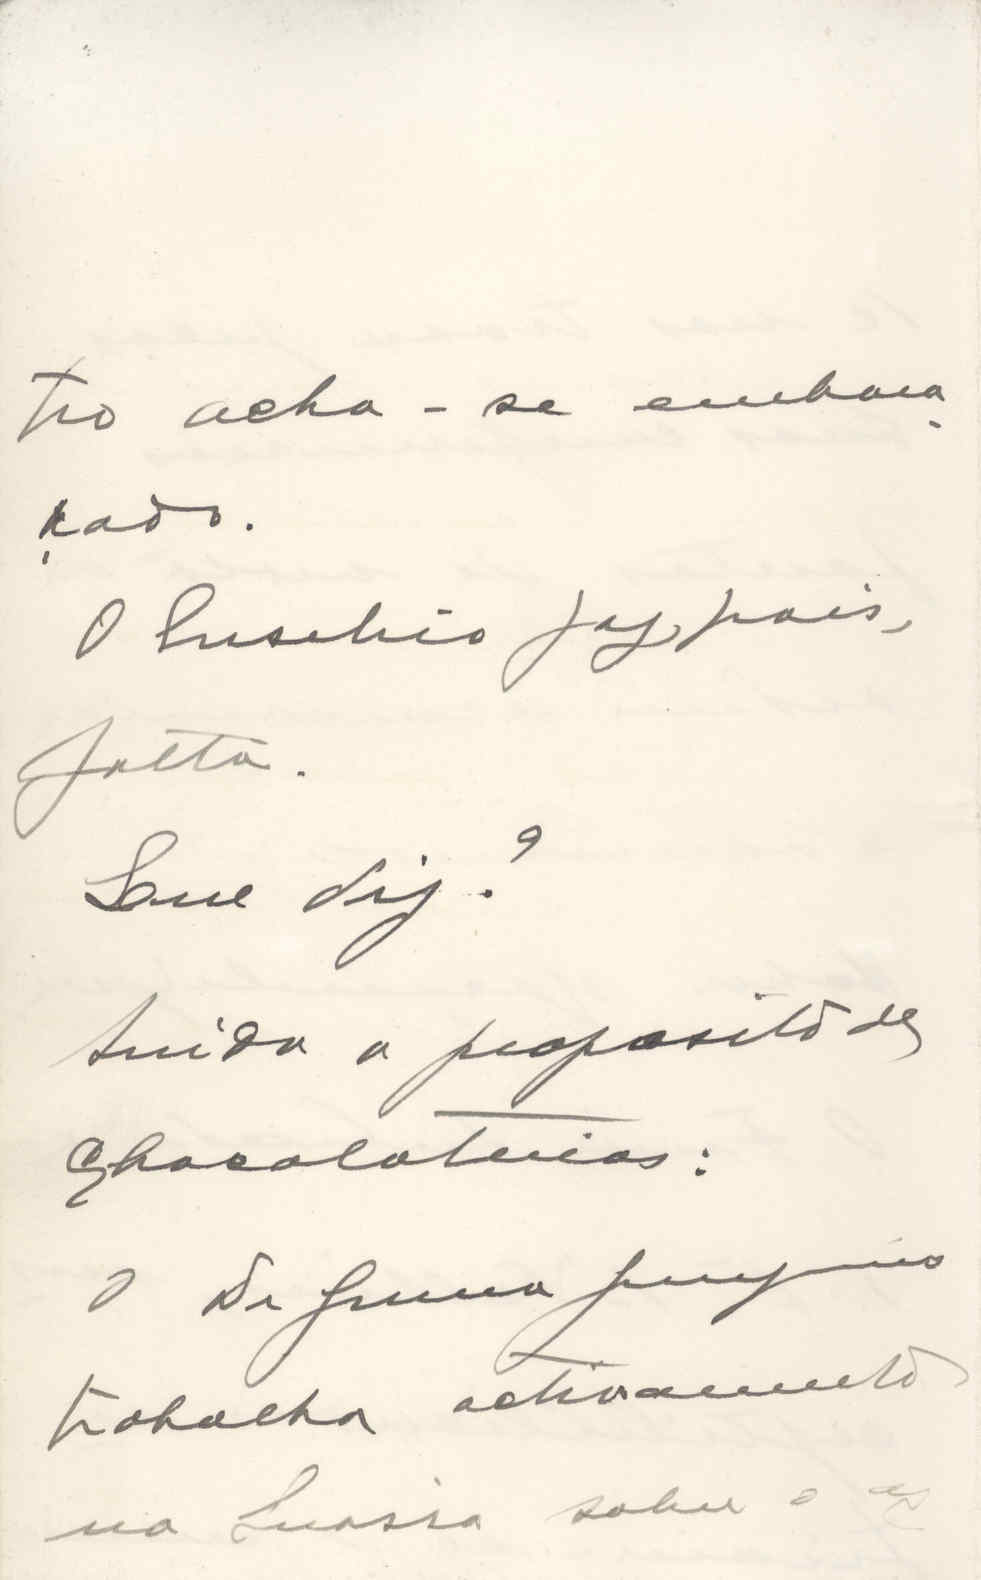 tro acha-se embara
çado.
O Eusebio faz, pois,
falta.
Que diz?
Ainda a proposito de
Chocolaterias:
O Dr
trabalha activamente
na Suissa sobre o